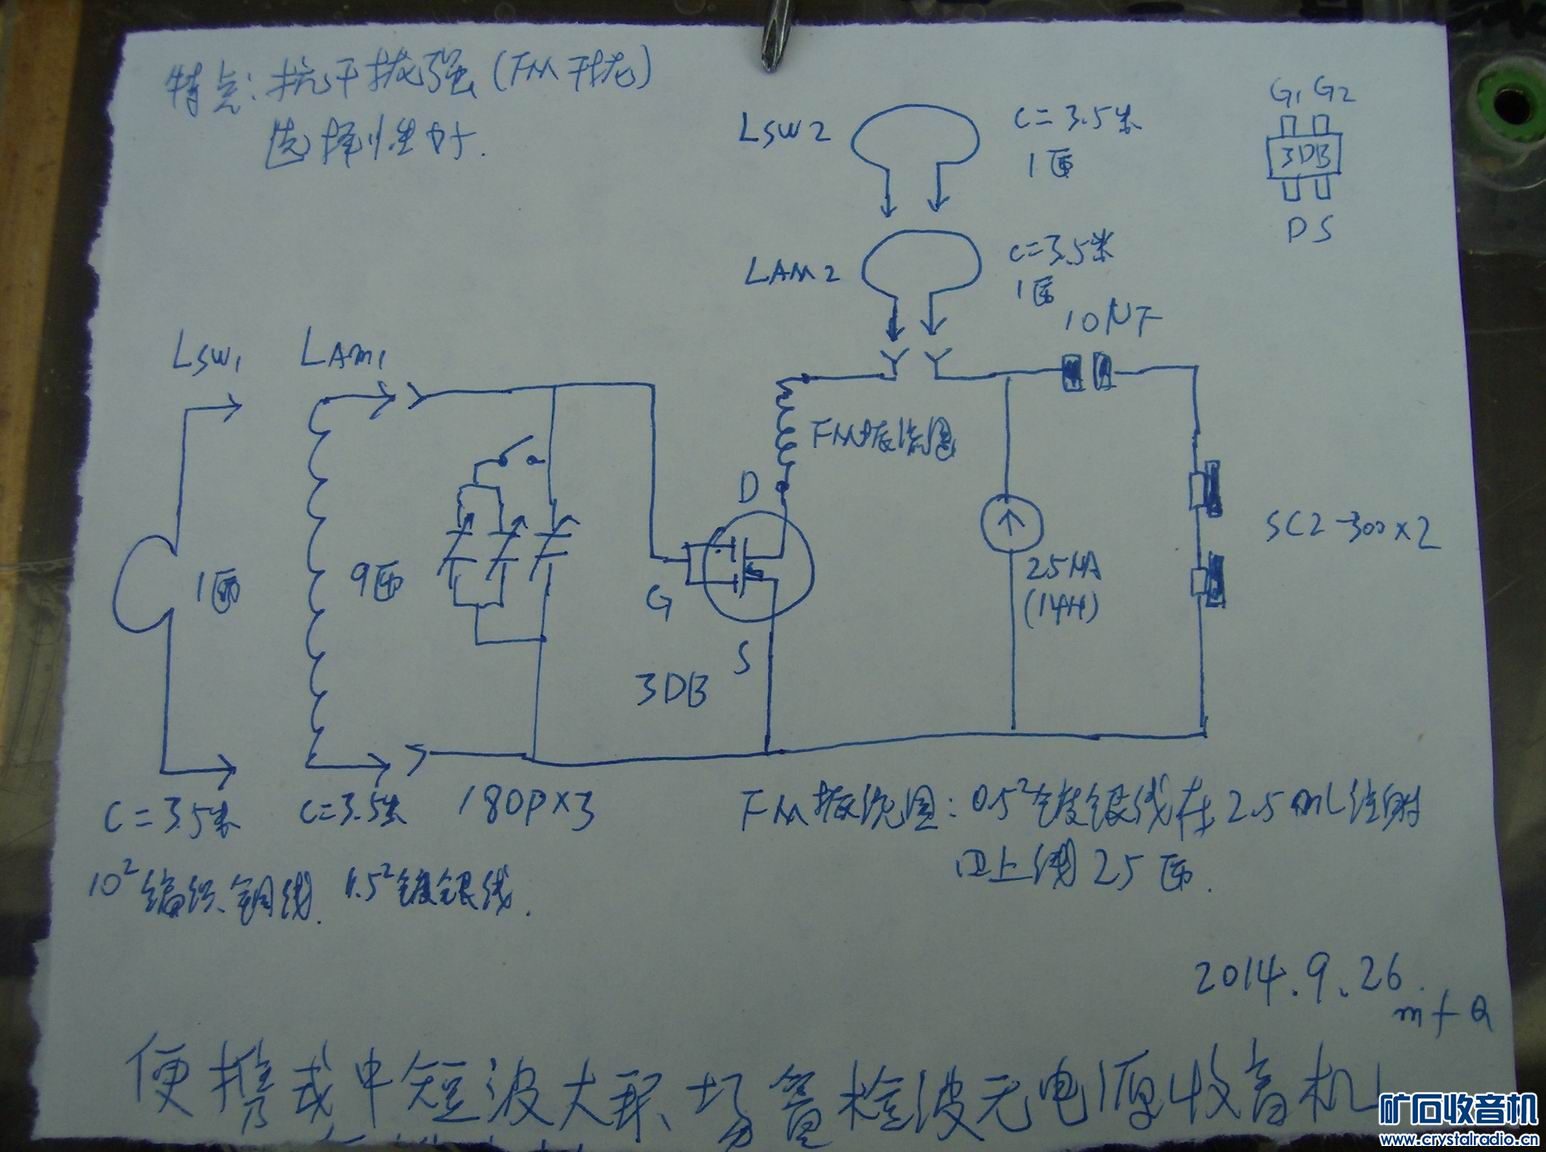 特点: 抗干扰强(FM干扰)
选择性好.
LSW2
C=3.5米
1匝
G1 G2
3DB
D S
LAM2
C=3.5米
1匝
10NF
LSW1
LAM1
FM扼流圈
D
G
S
3DB
1匝
9匝
SC2-300×2
C=3.5米
C=3.5米
180P×3
FM扼流圈: 0.5²镀银线在2.5mL注射
上绕25匝.
10²编织铜线.
镀银线.
2014.9.26.
mfQ
便携式中短波大环场管检波无电源收音机
矿石收音机
www.crystalradio.cn